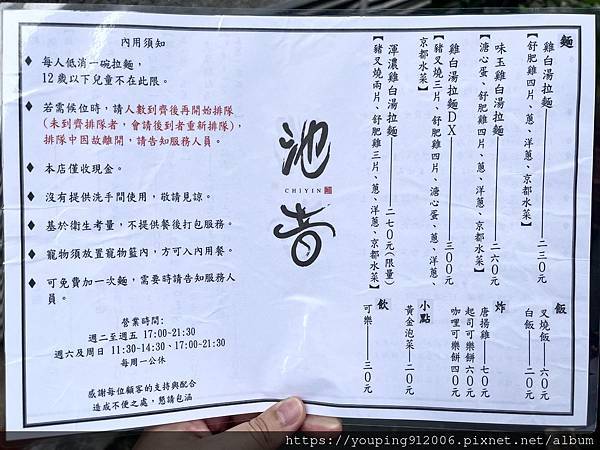 內用須知
◆ 每人低消一碗拉麵，
12歲以下兒童不在此限。
◆ 若需候位時，請人數到齊後再開始排隊
(未到齊排隊者，會請後到者重新排隊)，
排隊中因故離開，請告知服務人員。
◆ 本店僅收現金。
◆ 沒有提供洗手間使用，敬請見諒。
◆ 基於衛生考量，不提供餐後打包服務。
◆ 寵物須放置寵物籃內，方可入內用餐。
◆ 可免費加一次麵，需要時請告知服務人
員。
營業時間:
週二至週五 17:00-21:30
週六及周日 11:30-14:30、17:00-21:30
每周一公休
感謝每位顧客的支持與配合
造成不便之處，懇請包涵
池
CHIYIN
音
麵
雞白湯拉麵——二三0元
【舒肥雞四片、蔥、洋蔥、京都水菜】
味玉雞白湯拉麵——二六0元
【溏心蛋、舒肥雞四片、蔥、洋蔥、京都水菜】
雞白湯拉麵DX——三00元
【豬叉燒三片、舒肥雞四片、溏心蛋、蔥、洋蔥、
京都水菜】
渾濃雞白湯拉麵——二七0元(限量)
【豬叉燒兩片、舒肥雞三片、蔥、洋蔥、京都水菜】
飯
叉燒飯——六0元
白飯——二0元
炸
唐揚雞——七0元
起司可樂餅六0元
咖哩可樂餅四0元
小點
黃金泡菜——二0元
飲
可樂——三0元
https://youping912006.pixnet.net/album